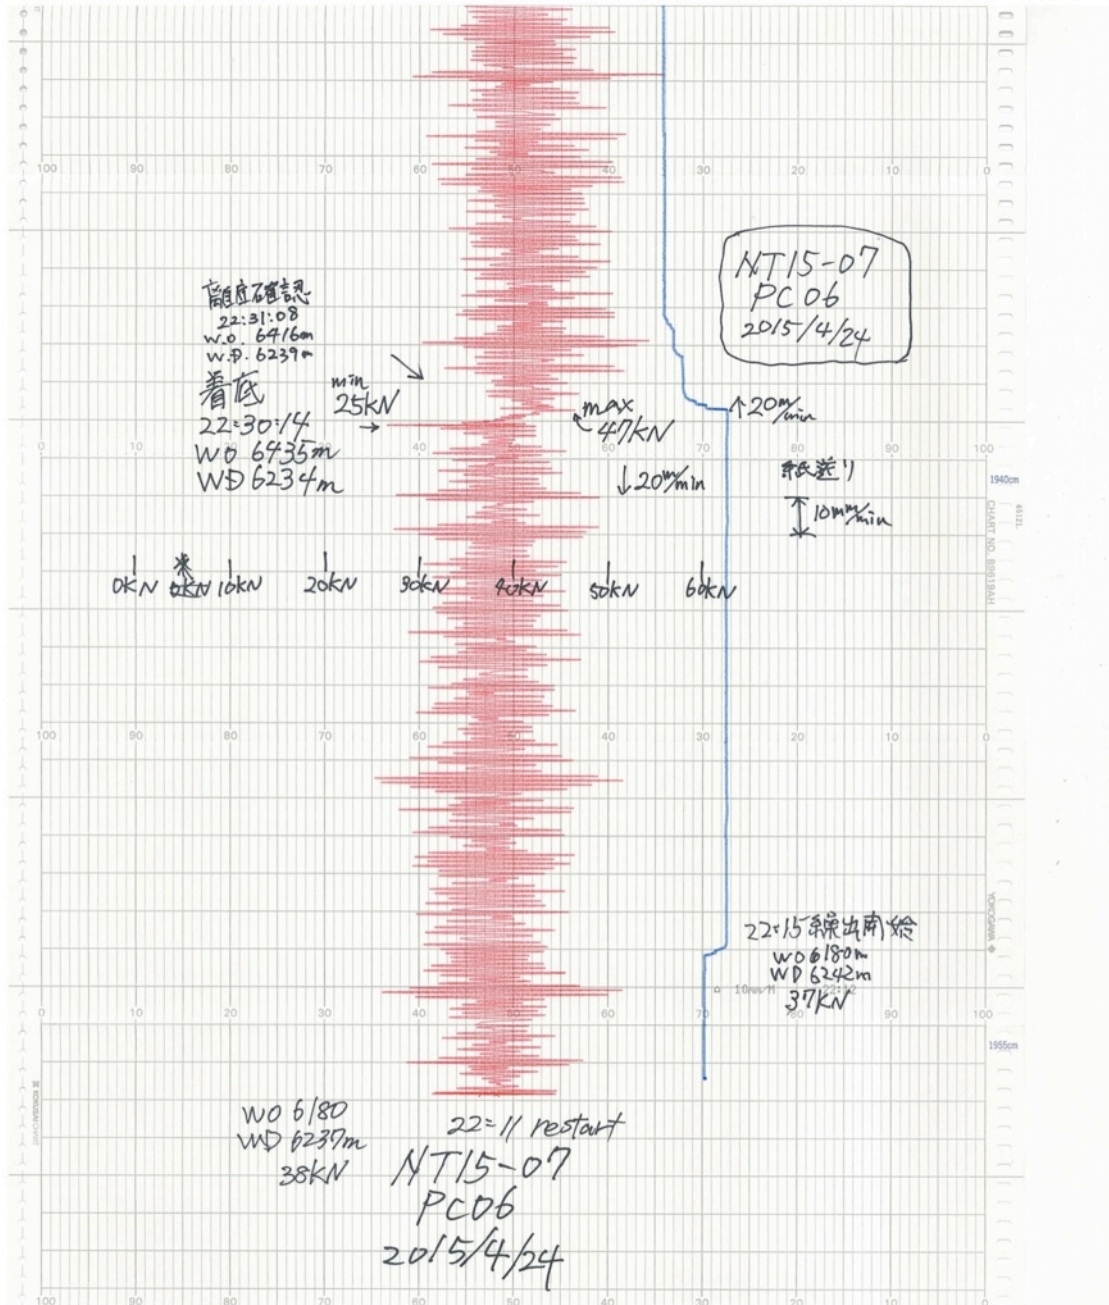 100 90 80 70 60 50 40 30 20 10 0
NT15-07
PC06
2015/4/24
離底確認
22:31:08
W.O. 6416m
W.D. 6239m
着底
22:30:14
WO 6435m
WD 6234m
min
25kN
max
47kN
↑20m/min
↓20m/min
紙送り
10mm/min
0 10 20 30 40 50 60 70 80 90 100
1940cm
CHART NO. B9619AH
0kN
0kN
10kN
20kN
30kN
40kN
50kN
60kN
100 90 80 70 60 50 40 30 20 10 0
YOKOGAWA
22:15 繰出開始
WO 6180m
WD 6242m
37kN
10mm/H 22:12
0 10 20 30 40 50 60 70 80 90 100
1955cm
WO 6180
WD 6237m
38kN
22:11 restart
NT15-07
PC06
2015/4/24